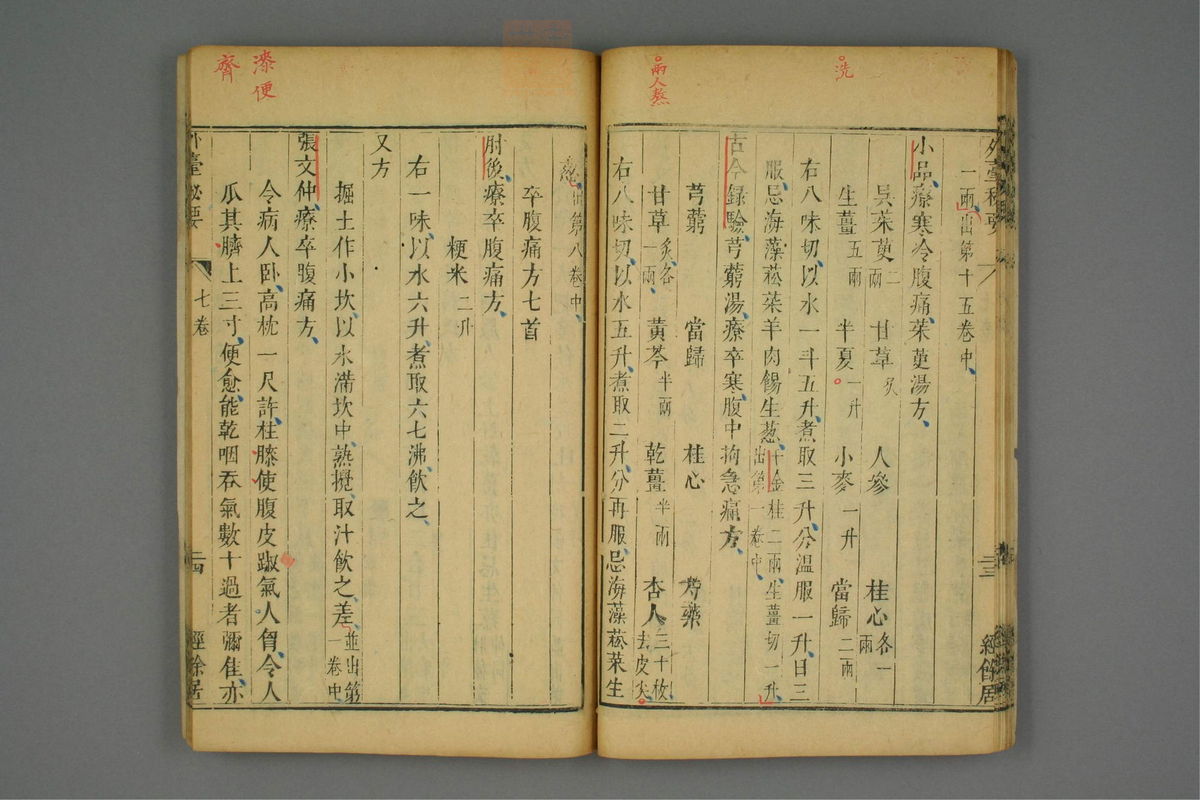 洗
兩人熬
外臺秘要
二三
經餘居
一兩出第十五卷中
小品療寒冷腹痛茱萸湯方
吳茱萸二兩 甘草炙 人參 桂心各一兩
生薑五兩 半夏一升 小麥一升 當歸二兩
右八味切以水一斗五升煮取三升分溫服一升日三
服忌海藻菘菜羊肉餳生葱千金桂二兩生薑切一升出第一卷中
古今録驗芎藭湯療卒寒腹中拘急痛方
芎藭 當歸 桂心 芍藥
甘草炙各一兩 黃芩半兩 乾薑半兩 杏人三十枚去皮尖
右八味切以水五升煮取二升分再服忌海藻菘菜生
漆便
齊
葱出第八卷中
卒腹痛方七首
肘後療卒腹痛方
粳米二升
右一味以水六升煮取六七沸飲之
又方
掘土作小坎以水滿坎中熟攪取汁飲之差並出第一卷中
張文仲療卒腹痛方
令病人卧高枕一尺許桂膝使腹皮踧氣入胷令人
瓜其臍上三寸便愈能乾咽吞氣數十過者彌佳亦
外臺秘要
七卷
二四
經餘居